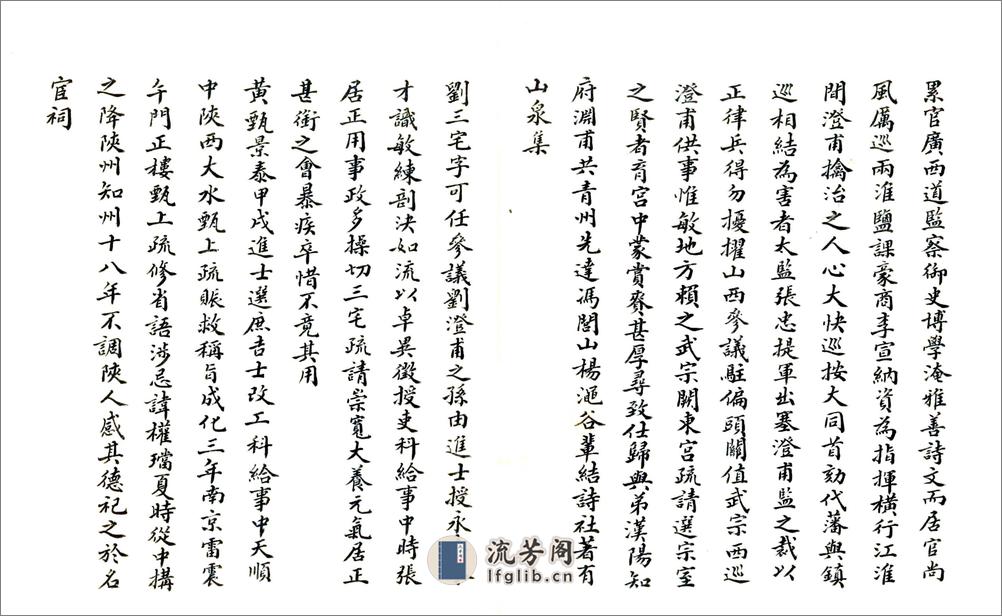 累官廣西道監察御史博學淹雅善詩文而居官尚
風厲巡兩淮鹽課豪商李宣納資為指揮橫行江淮
間澄甫擒治之人心大快巡按大同首劾代藩與鎮
巡相結為害者太監張忠提軍出塞澄甫監之裁以
正律兵得勿擾擢山西參議駐偏頭關值武宗西巡
澄甫供事惟敏地方賴之武宗闕東宮疏請選宗室
之賢者育宮中蒙賞賚甚厚尋致仕歸與弟漢陽知
府淵甫共青州先達馮閭山楊澠谷輩結詩社著有
山泉集
劉三宅字可任參議劉澄甫之孫由進士授永
才識敏練剖決如流以卓異徵授吏科給事中時張
居正用事政多操切三宅疏請崇寬大養元氣居正
甚銜之會暴疾卒惜不竟其用
黃甄景泰甲戌進士選庶吉士改工科給事中天順
中陝西大水甄上疏賑救稱旨成化三年南京雷震
午門正樓甄上疏修省語涉忌諱權璫夏時從中搆
之降陝州知州十八年不調陝人感其德祀之於名
宦祠
流芳阁
lfglib.com